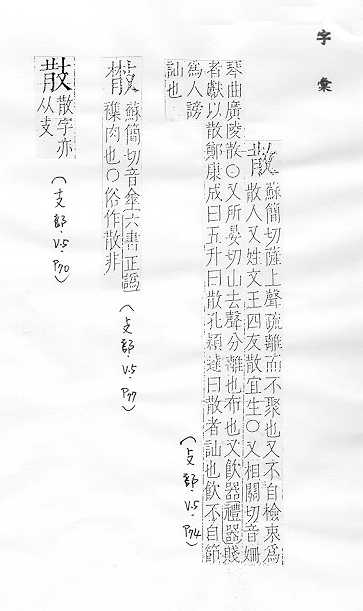 字彙
散 蘇簡切薩上聲疏離而不聚也又不自檢束為
散人又姓文王四友散宜生○又相關切音姍
琴曲廣陵散○又所晏切山去聲分離也布也又飲器禮器賤
者獻以散鄭康成曰五升曰散孔穎達曰散者訕也飲不自節
為人謗
訕也
蘇簡切音傘六書正譌
雜肉也○俗作散非
㪔 散字亦
从支
(攴部.V.5.P74)
(攴部.V.5.P77)
(支部.V.5.P70)